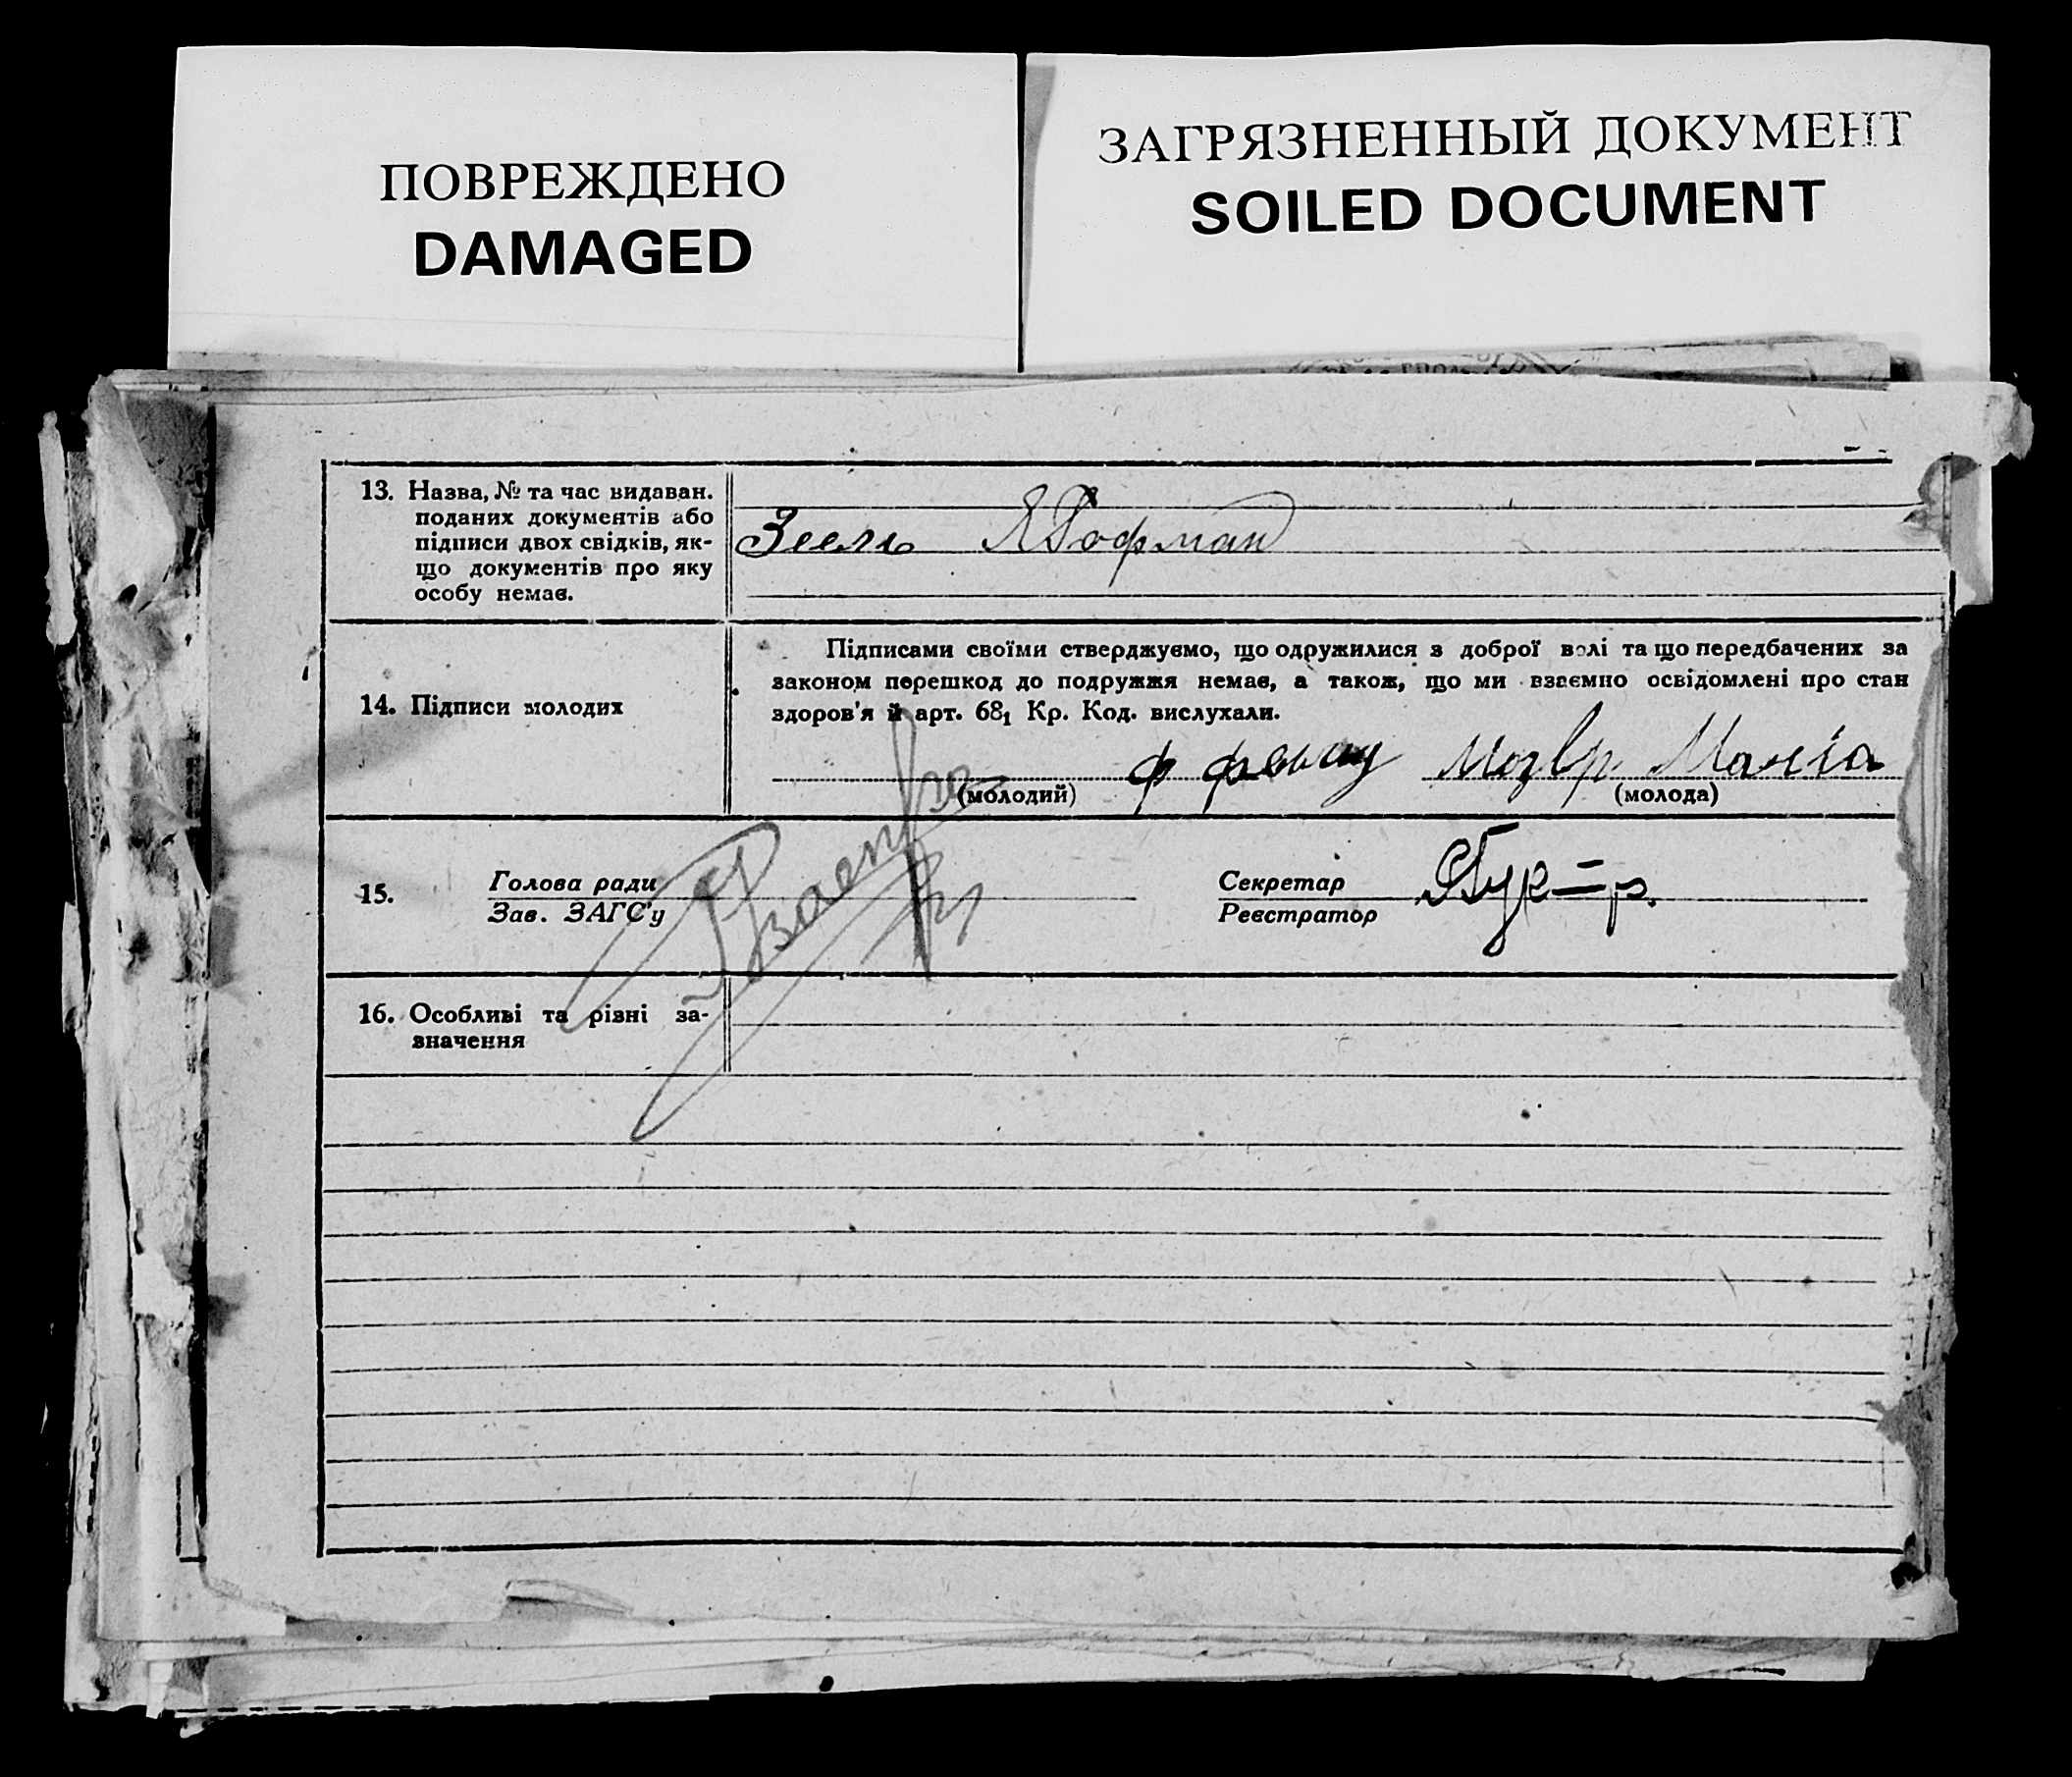 ПОВРЕЖДЕНО
DAMAGED
ЗАГРЯЗНЕННЫЙ ДОКУМЕНТ
SOILED DOCUMENT
13. Назва, № та час видаван.
поданих документів або
підписи двох свідків, як-
що документів про яку
особу немає.
Гофман
14. Підписи молодих
Підписами своїми стверджуємо, що одружилися з доброї волі та що передбачених за
законом перешкод до подружжя немає, а також, що ми взаємно освідомлені про стан
здоров'я й арт. 68₁ Кр. Код. вислухали.
(молодий)
(молода)
15.
Голова ради
Зав. ЗАГС'у
Секретар
Реєстратор
16. Особливі та різні за-
значення